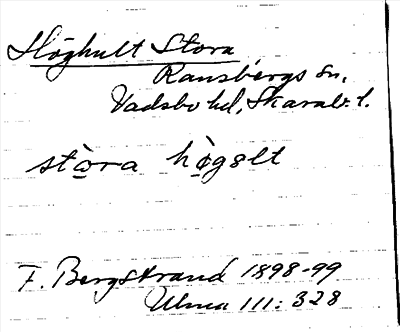 Höghult Stora
Ransbergs sn,
Vadsbo hd, Skarab. l.
stò̱ra hø̱̀gelt
F. Bergstrand 1898-99
Ulma 111: 328